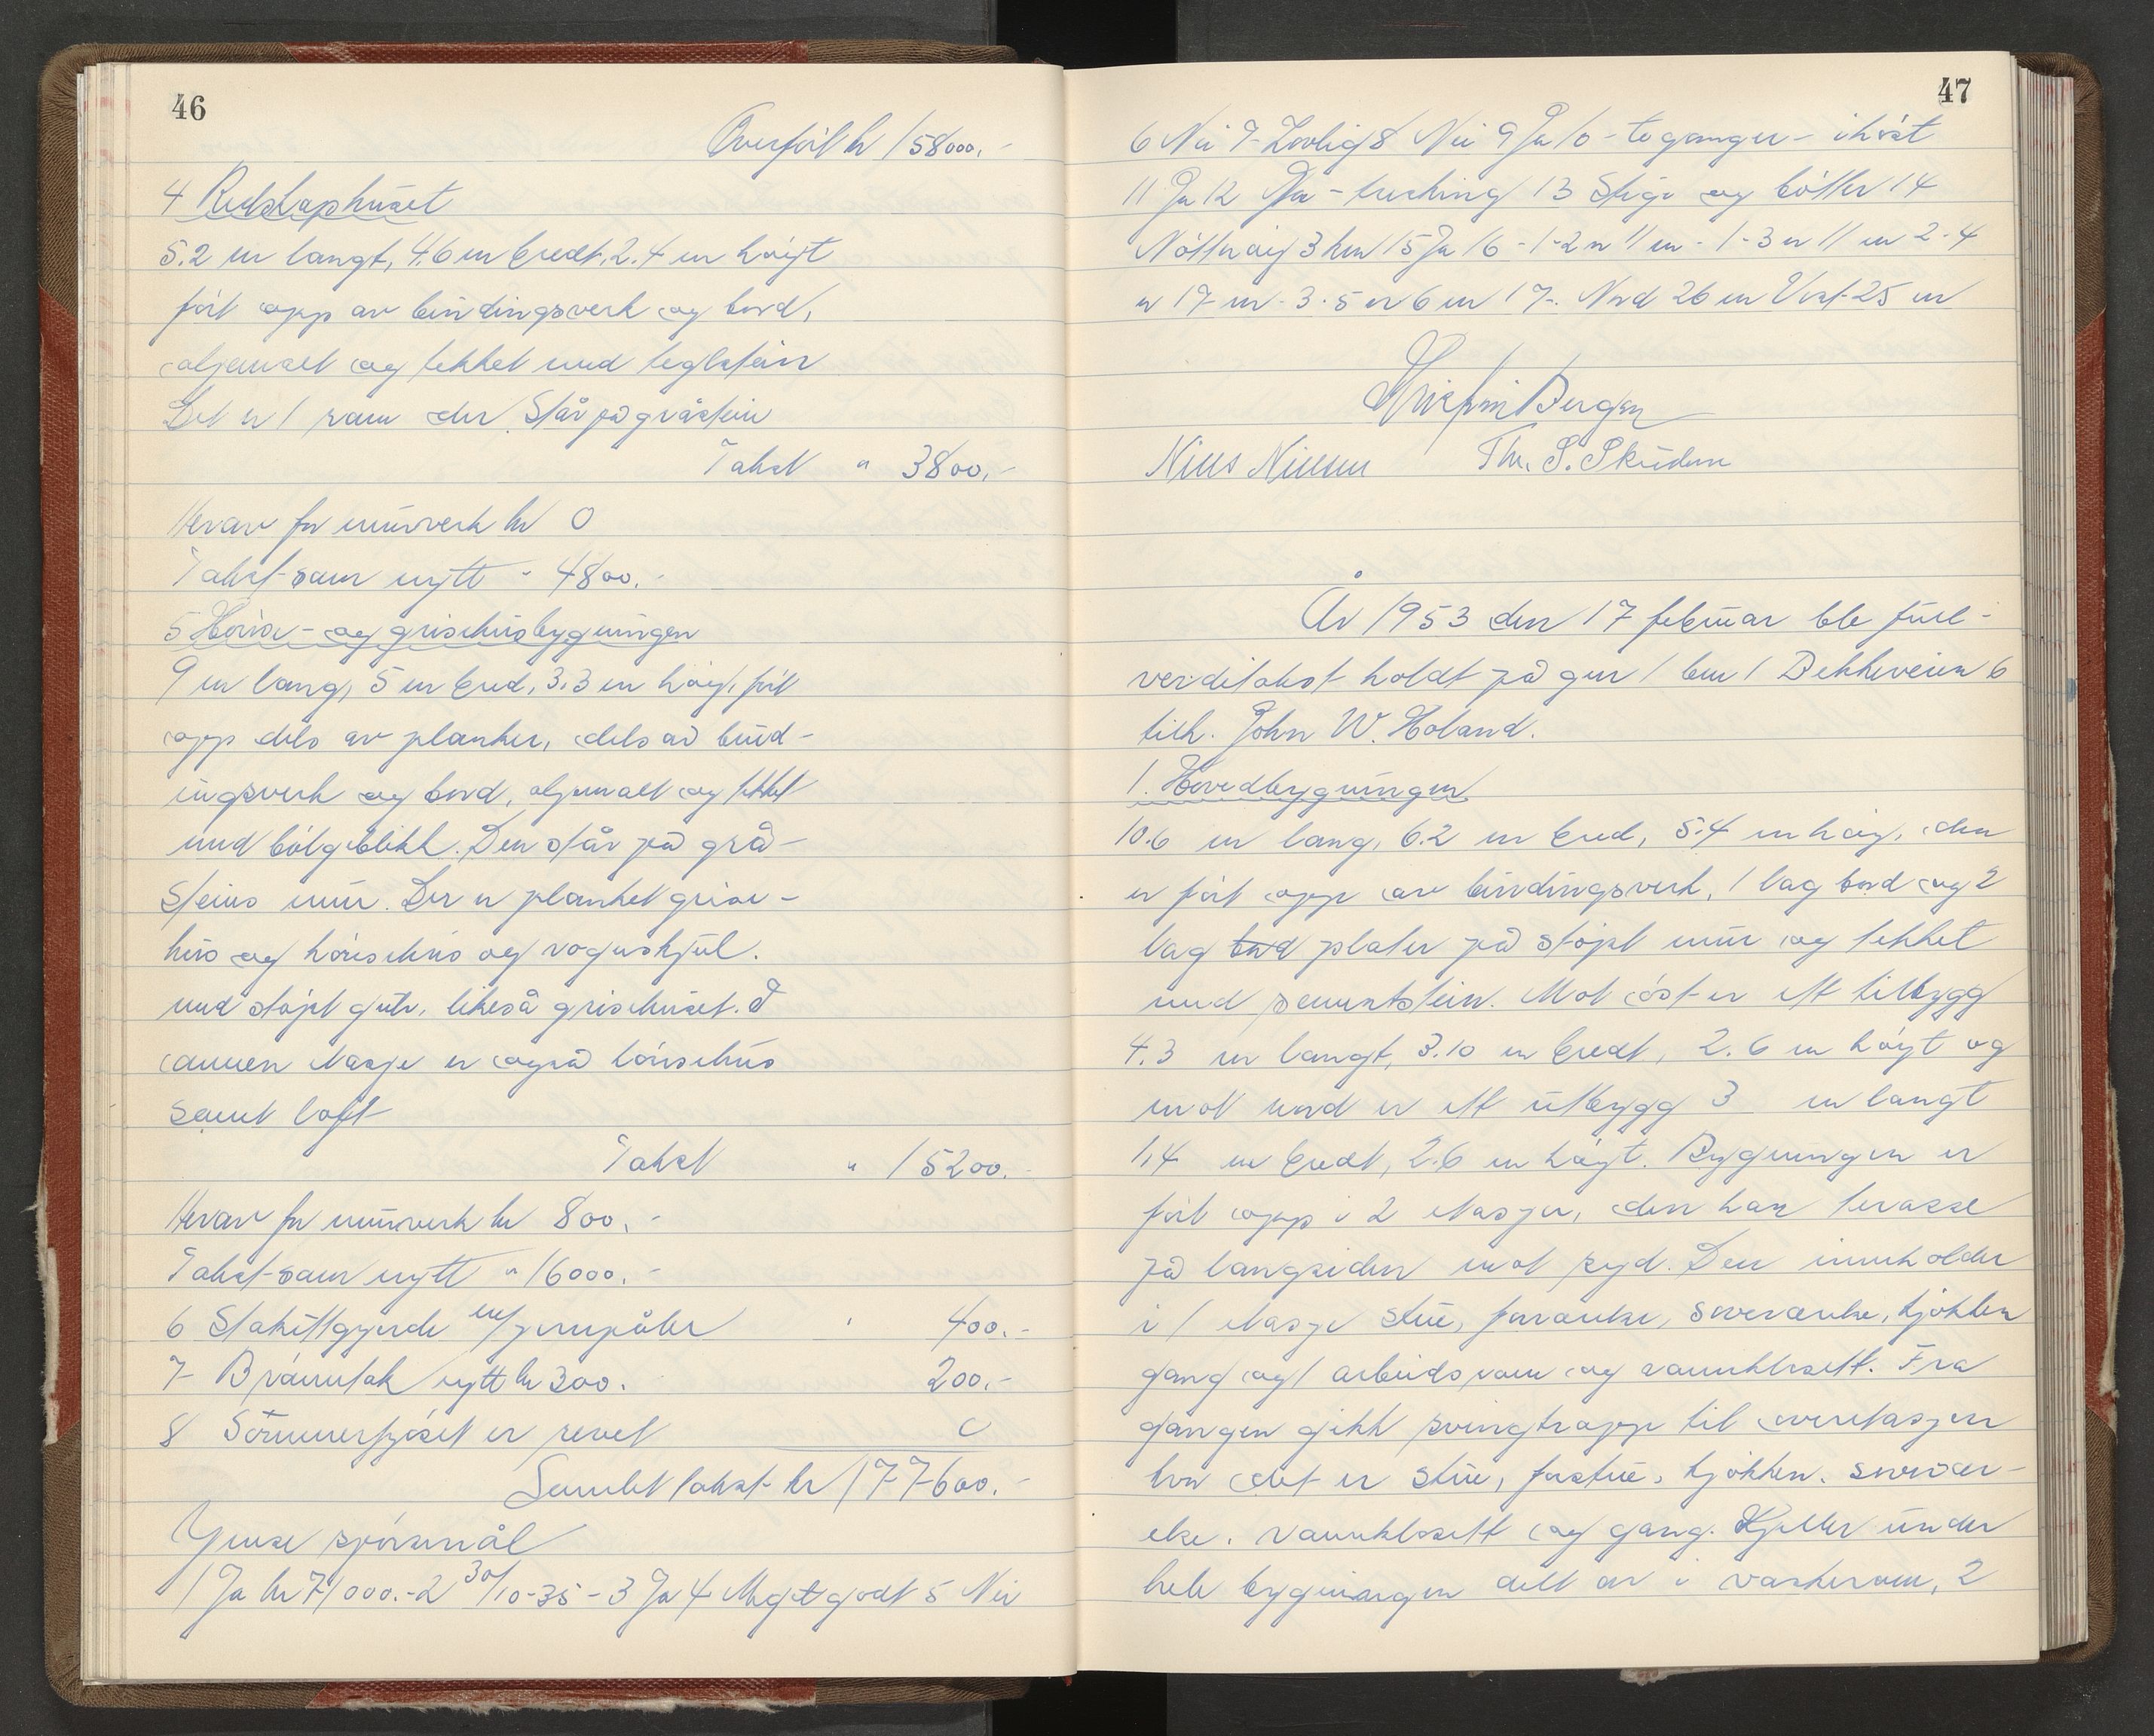 46
Overført kr 158000.-
4 Redskaphuset
5.2 m langt, 4.6 m bredt, 2.4 m høigt
ført opp av bindingsverk og bord,
oljemalt og tekket med teglstein
Det er 1 rom der står på gråstein
Takst " 3800.-
Herav for murverk kr 0
Takst som nytt " 4800.-
5 Hønse- og grisehusbygningen
9 m lang, 5 m bred, 3.3 m høig, ført
opp dels av planker, dels av bind-
ingsverk og bord, oljemalt og tekket
med bølgeblikk. Den står på grå-
steins mur. Der er planket grise-
hus og hønsehus og vognskjul.
med støpt gulv, likeså grisehuset. I
annen etasje er også hønsehus
samt loft
Takst " 15200.-
Herav for murverk kr 800.-
Takst som nytt " 16000.-
6 Stakittgjerde m/ jernpåler " 400.-
7 Brønntak nytt kr 300. 200.-
8 Sommerfjøset er revet 0
Samlet takst kr 177600.-
Ymse spørsmål
1 Ja kr 71000.- 2 30/10-35 - 3 Ja 4 Meget godt 5 Nei
47
6 Nei 7 Lovlig 8 Nei 9 Ja 10 - to ganger - i høst
11 Ja 12 Ja - 13 Stige og bøtter 14
Nøtterøy 3 km 15 Ja 16 - 1-2 er 11 m - 1-3 er 11 m 2-4
er 17 m - 3-5 er 6 m 17. Nord 26 m Vest 25 m
Bergan
Nils Nilsen Th. S. Skuden
År 1953 den 17 februar ble full-
verditakst holdt på gnr 1 bnr 1 Bekkeveien 6
tilh. John W. Holand.
1. Hovedbygningen
10.6 m lang, 6.2 m bred, 5.4 m høig, den
er ført opp av bindingsverk, 1 lag bord og 2
lag bord plater på støpt mur og tekket
med sementstein. Mot øst er ett tilbygg
4.3 m langt, 3.10 m bredt, 2.6 m høigt og
mot nord er ett utbygg 3 m langt
1,4 m bredt, 2.6 m høigt. Bygningen er
ført opp i 2 etasjer, den har terasse
på langsiden mot syd. Den inneholder
i 1 etasje stue, forværelse, soveværelse, kjøkken
gang og 1 arbeidsrom og vannklosett. Fra
gangen gikk svingtrapp til overetasjen
hvor det er stue, forstue, kjøkken, sovevær-
else, vannklosett og gang. Kjeller under
hele bygningen delt av i vaskerom, 2